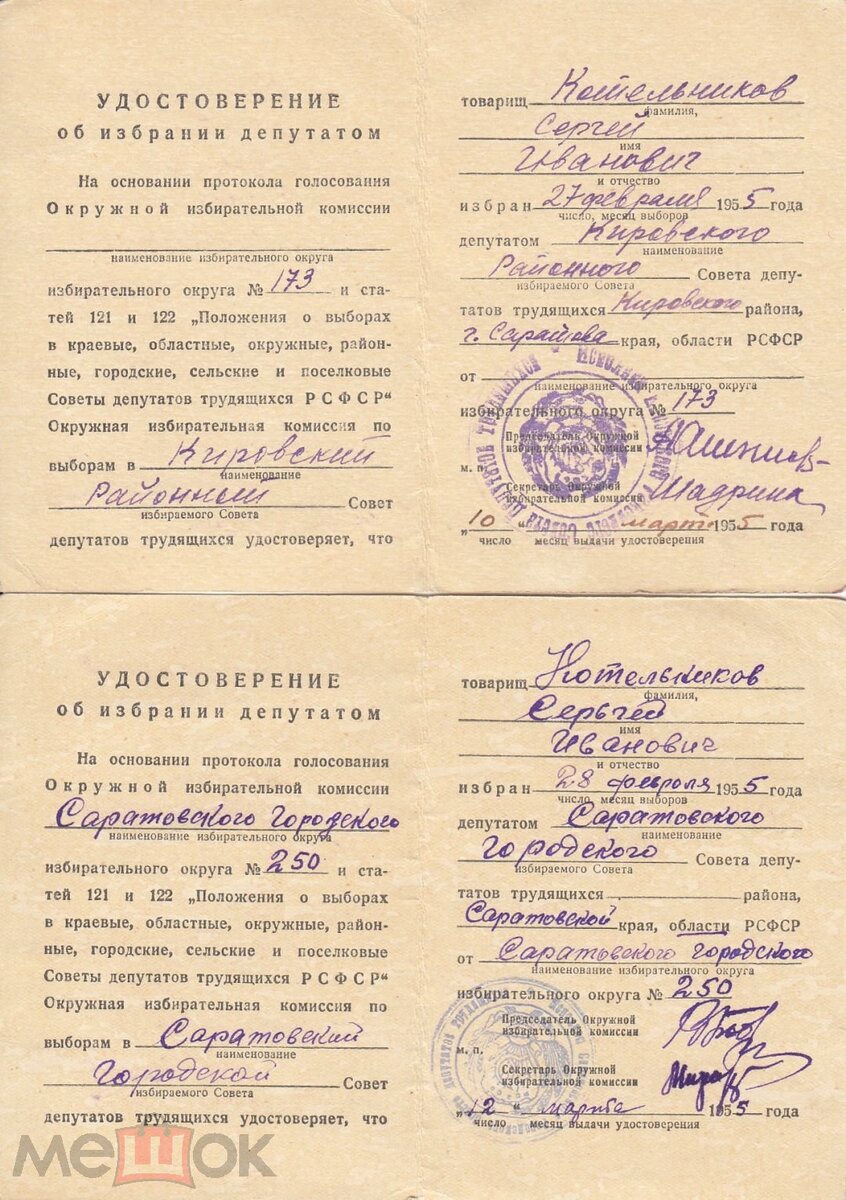 УДОСТОВЕРЕНИЕ
об избрании депутатом
На основании протокола голосования
Окружной избирательной комиссии
наименование избирательного округа
избирательного округа № 173 и ста-
тей 121 и 122 „Положения о выборах
в краевые, областные, окружные, район-
ные, городские, сельские и поселковые
Советы депутатов трудящихся РСФСР“
Окружная избирательная комиссия по
выборам в Кировский
наименование
Районный Совет
избираемого Совета
депутатов трудящихся удостоверяет, что
товарищ Котельников
фамилия,
Сергей
имя
Иванович
и отчество
избран 27 февраля 1955 года
число, месяц выборов
депутатом Кировского
наименование
Районного Совета депу-
избираемого Совета
татов трудящихся Кировского района,
г. Саратова края, области РСФСР
от
наименование избирательного округа
избирательного округа № 173
Председатель Окружной
избирательной комиссии
м. п.
Секретарь Окружной
избирательной комиссии Шадрина
„10 “ март 1955 года
число месяц выдачи удостоверения
УДОСТОВЕРЕНИЕ
об избрании депутатом
На основании протокола голосования
Окружной избирательной комиссии
Саратовского Городского
наименование избирательного округа
избирательного округа № 250 и ста-
тей 121 и 122 „Положения о выборах
в краевые, областные, окружные, район-
ные, городские, сельские и поселковые
Советы депутатов трудящихся РСФСР“
Окружная избирательная комиссия по
выборам в Саратовский
наименование
Городской Совет
избираемого Совета
депутатов трудящихся удостоверяет, что
товарищ Котельников
фамилия,
Серьгей
имя
Иванович
и отчество
избран 28 февраля 1955 года
число, месяц выборов
депутатом Саратовского
наименование
Городского Совета депу-
избираемого Совета
татов трудящихся района,
Саратовской края, области РСФСР
от Саратовского городского
наименование избирательного округа
избирательного округа № 250
Председатель Окружной
избирательной комиссии
м. п.
Секретарь Окружной
избирательной комиссии
„12 “ марта 1955 года
число месяц выдачи удостоверения
мешок